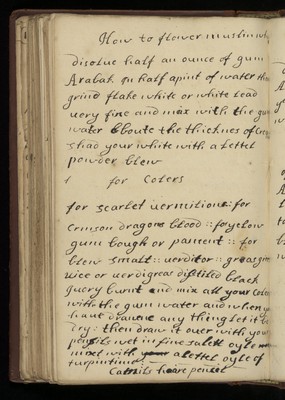 How to flower muslin
disolue half an ounce of gum
Arabah in half a pint of water then
grind flake white or white lead
uery fine and mix with the gum
water about the thicknes of
shad your white with a lettel
powder blew
for Colers
for scarlet uermilion: for
Crimson dragons blood :: for yelow
gum bough or :: for
blew smalt :: uerditor :: gras green
or uerdigreas distiled black
Iuory burnt and mix all your Coler
with the gum water and when
haue drawne any thing let it be
Dry: then draw it ouer with your
pensils wet in fine sallet oyle
mixed with a lettel oyle of
turpintine
hare pensel